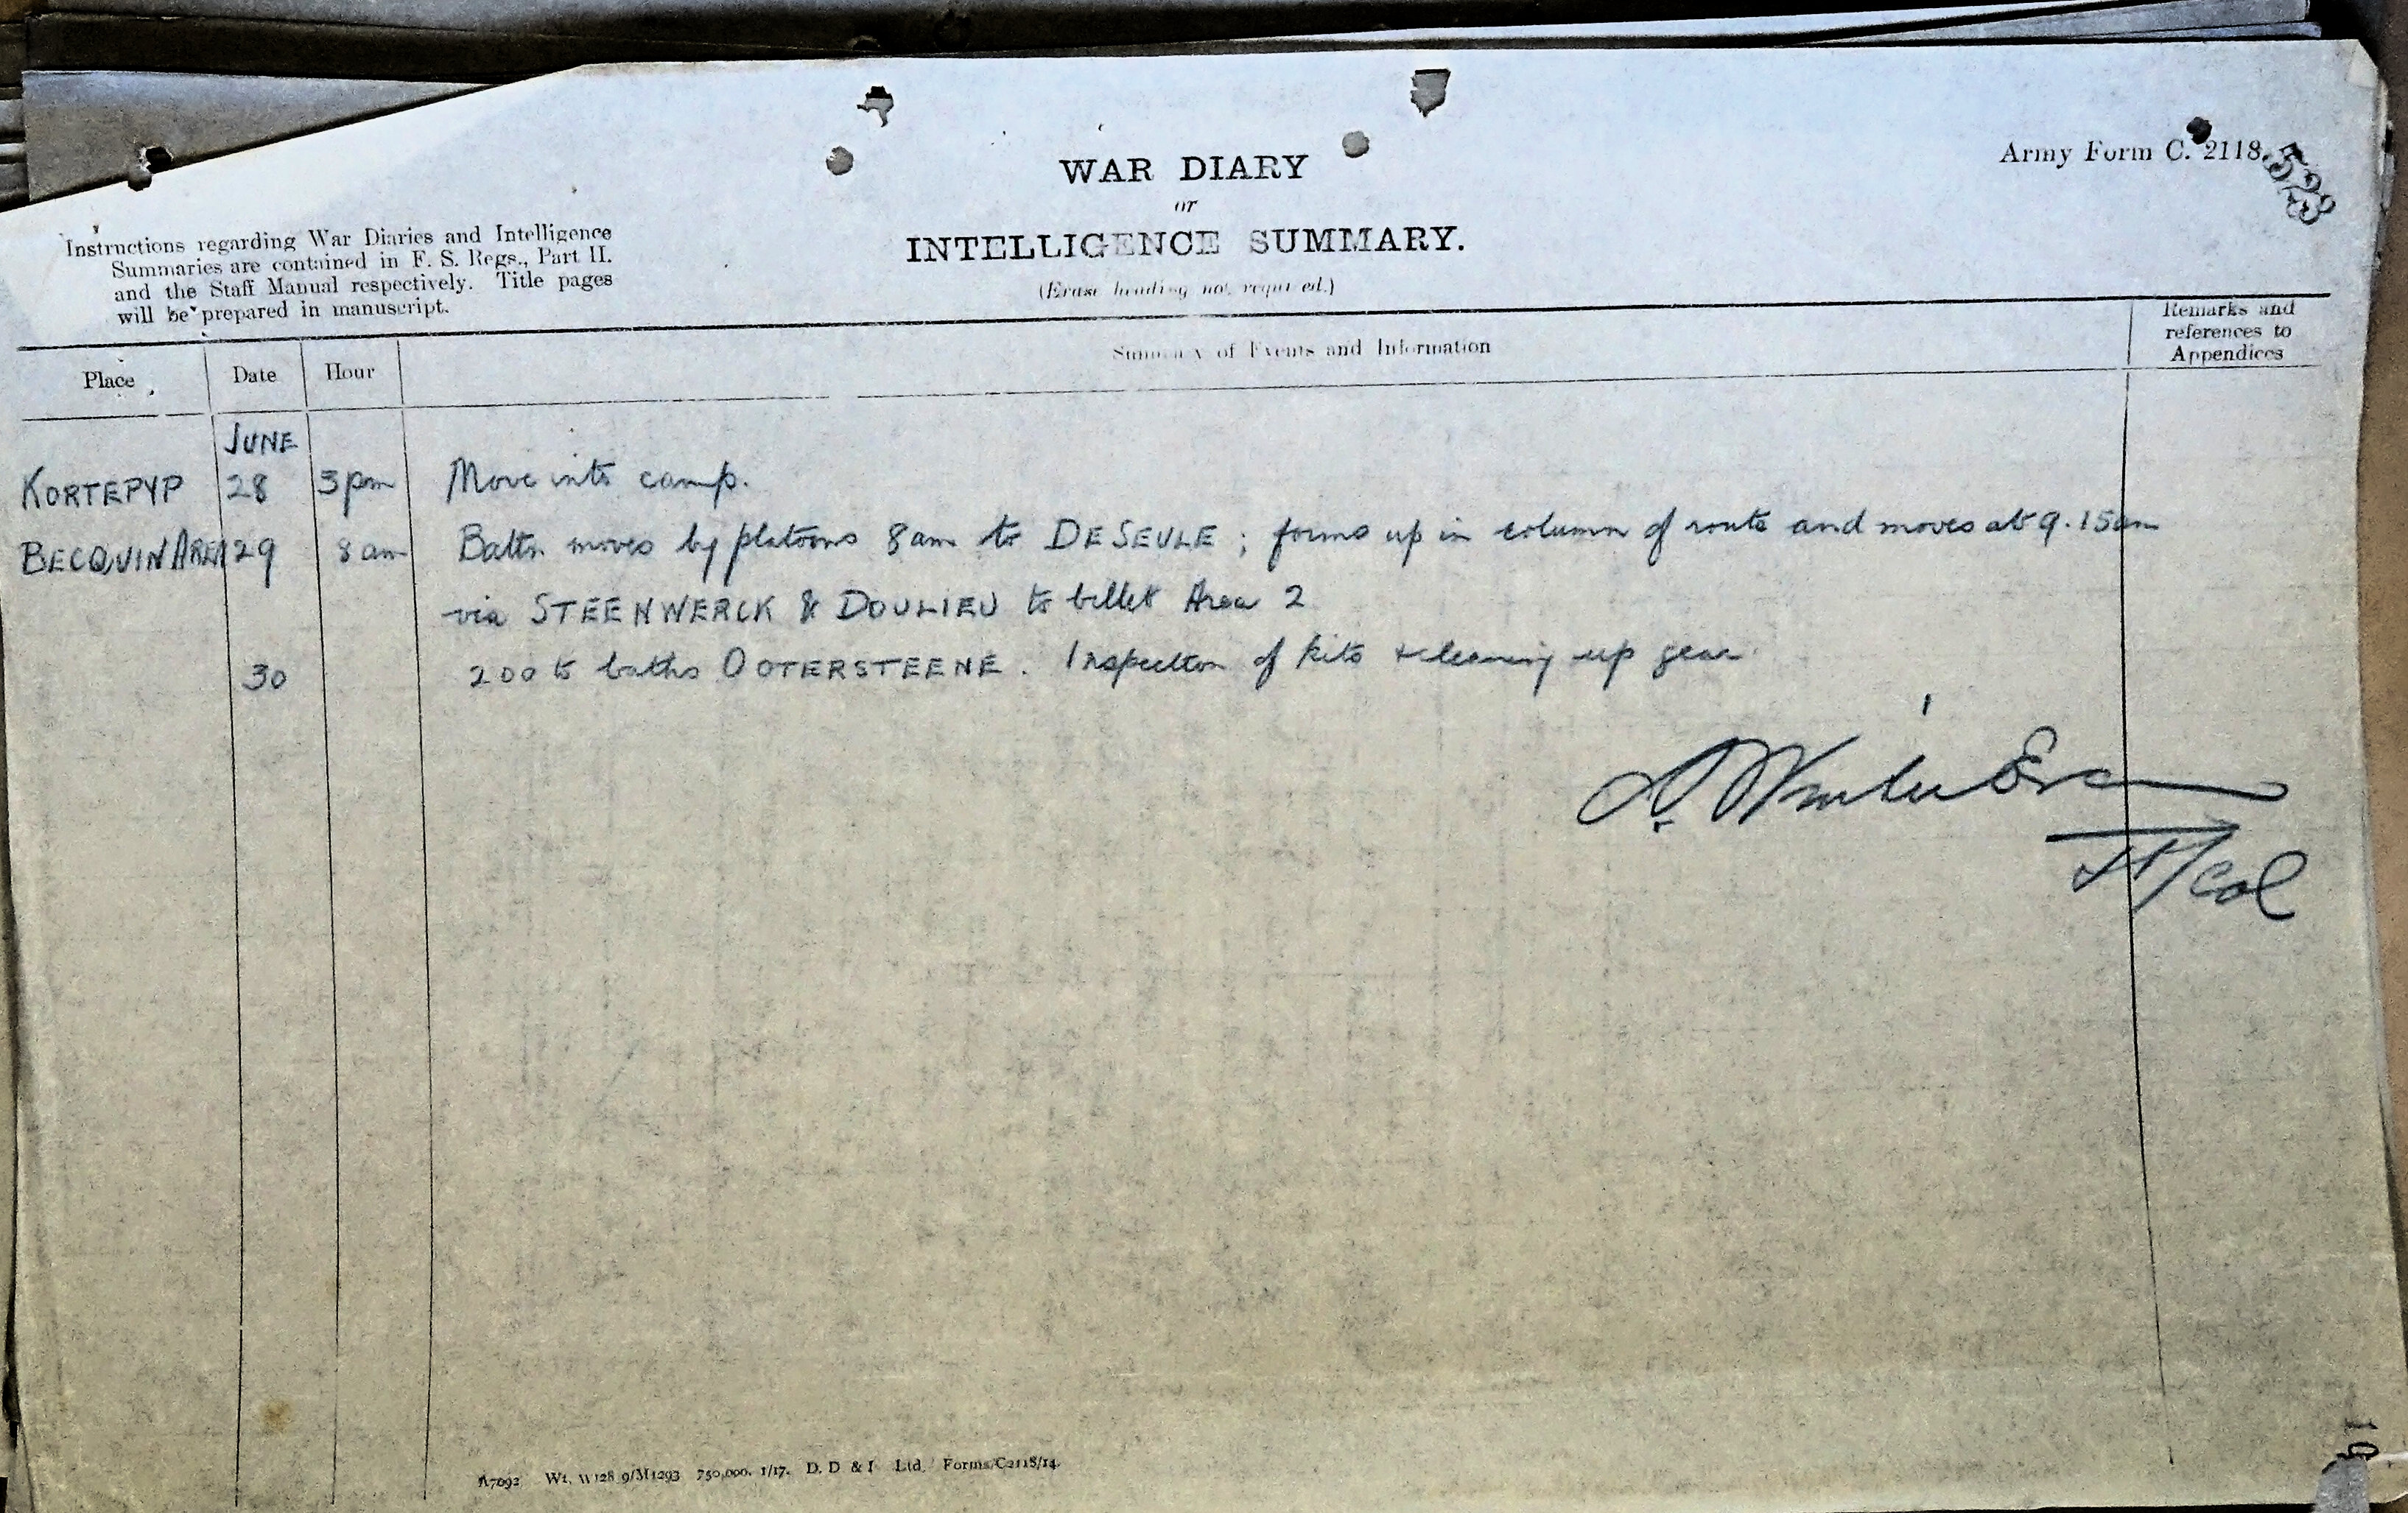 Army Form C. 2118.
523
WAR DIARY
or
INTELLIGENCE SUMMARY.
(Erase heading not required.)
Instructions regarding War Diaries and Intelligence
Summaries are contained in F. S. Regs., Part II.
and the Staff Manual respectively. Title pages
will be prepared in manuscript.
Place Date Hour Summary of Events and Information Remarks and references to Appendices
JUNE
KORTEPYP 28 3pm Move into camp.
BECQUIN AREA 29 8am Battn moves by platoons 8am to DE SEULE ; forms up in column of route and moves at 9.15am
via STEENWERCK & DOULIEU to billet Area 2
30 200 to baths OOTERSTEENE. Inspection of kits & cleaning up gear
Lt/Col
A7092 Wt. W128 9/M1293 750,000. 1/17. D. D & I Ltd. Forms/C2118/14.